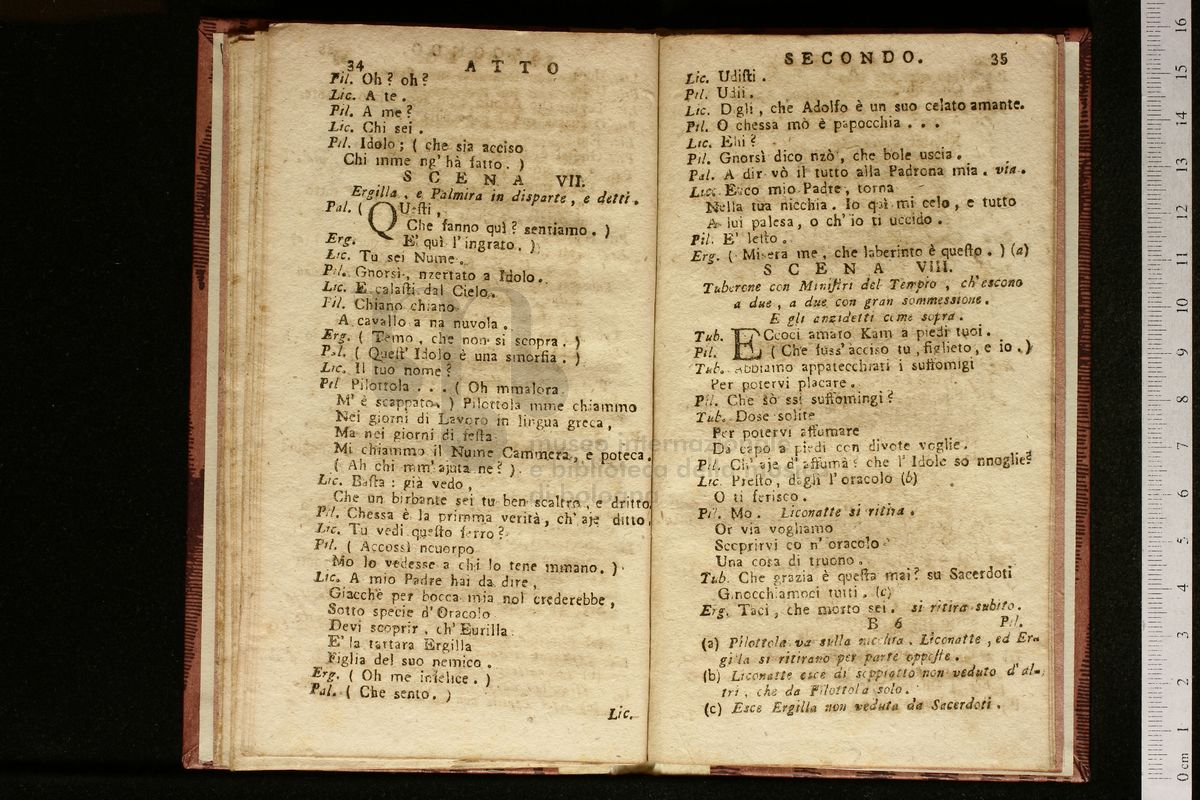 34 ATTO
Pil. Oh? oh?
Lic. A te.
Pil. A me?
Lic. Chi sei.
Pil. Idolo; ( che sia acciso
Chi mme ng' hà fatto. )
SCENA VII.
Ergilla, e Palmira in disparte, e detti.
Pal. ( QUesti,
Che fanno quì? sentiamo. )
Erg. E' quì l'ingrato. )
Lic. Tu sei Nume.
Pil. Gnorsì, nzertato a Idolo.
Lic. E calasti dal Cielo.
Pil. Chiano chiano
A cavallo a na nuvola.
Erg. ( Temo, che non si scopra. )
Pal. ( Quest' Idolo è una smorfia. )
Lic. Il tuo nome?
Pil Pilottola . . . ( Oh mmalora
M' è scappato. ) Pilottola mme chiammo
Nei giorni di Lavoro in lingua greca,
Ma nei giorni di festa
Mi chiammo il Nume Cammera, e poteca.
( Ah chi mm' ajuta ne? )
Lic. Basta: già vedo,
Che un birbante sei tu ben scaltro, e dritto.
Pil. Chessa è la primma verità, ch' aje ditto.
Lic. Tu vedi questo ferro?
Pil. ( Accossì ncuorpo
Mo lo vedesse a chi lo tene mmano. )
Lic. A mio Padre hai da dire,
Giacchè per bocca mia nol crederebbe,
Sotto specie d' Oracolo
Devi scoprir, ch' Eurilla
E' la tartara Ergilla
Figlia del suo nemico.
Erg. ( Oh me infelice. )
Pal. ( Che sento. )
Lic.
SECONDO. 35
Lic. Udisti.
Pil. Udii.
Lic. Dgli, che Adolfo è un suo celato amante.
Pil. O chessa mò è papocchia . . .
Lic. Ehi?
Pil. Gnorsì dico nzò, che bole uscia.
Pal. A dir vò il tutto alla Padrona mia. via.
Lic. Ecco mio Padre, torna
Nella tua nicchia. Io quì mi celo, e tutto
A lui palesa, o ch' io ti uccido.
Pil. E' letto.
Erg. ( Misera me, che laberinto è questo. ) (a)
SCENA VIII.
Tuberone con Ministri del Tempio, ch' escono
a due, a due con gran sommessione.
E gli anzidetti come sopra.
Tub. ECcoci amato Kam a piedi tuoi.
Pil. ( Che fuss' acciso tu, figlieto, e io. )
Tub. Abbiamo appatecchiati i suffomigi
Per potervi placare.
Pil. Che sò ssi suffomingi?
Tub. Dose solite
Per potervi affumare
Da capo a piedi con divote voglie.
Pil. Ch' aje d' affumà? che l' Idole so nnoglie?
Lic. Presto, dagli l' oracolo (b)
O ti ferisco.
Pil. Mo. Liconatte si ritira.
Or via vogliamo
Scoprirvi co n' oracolo
Una cosa di truono.
Tub. Che grazia è questa mai? su Sacerdoti
Ginocchiamoci tutti. (c)
Erg. Taci, che morto sei. si ritira subito.
B 6 Pil.
(a) Pilottola va sulla nicchia. Liconatte, ed Er-
gilla si ritirano per parte opposte.
(b) Liconatte esce di soppiatto non veduto d' al-
tri, che da Pilottola solo.
(c) Esce Ergilla non veduta da Sacerdoti.
museo internazionale
e biblioteca della musica
di bologna
0 cm 1 2 3 4 5 6 7 8 9 10 11 12 13 14 15 16